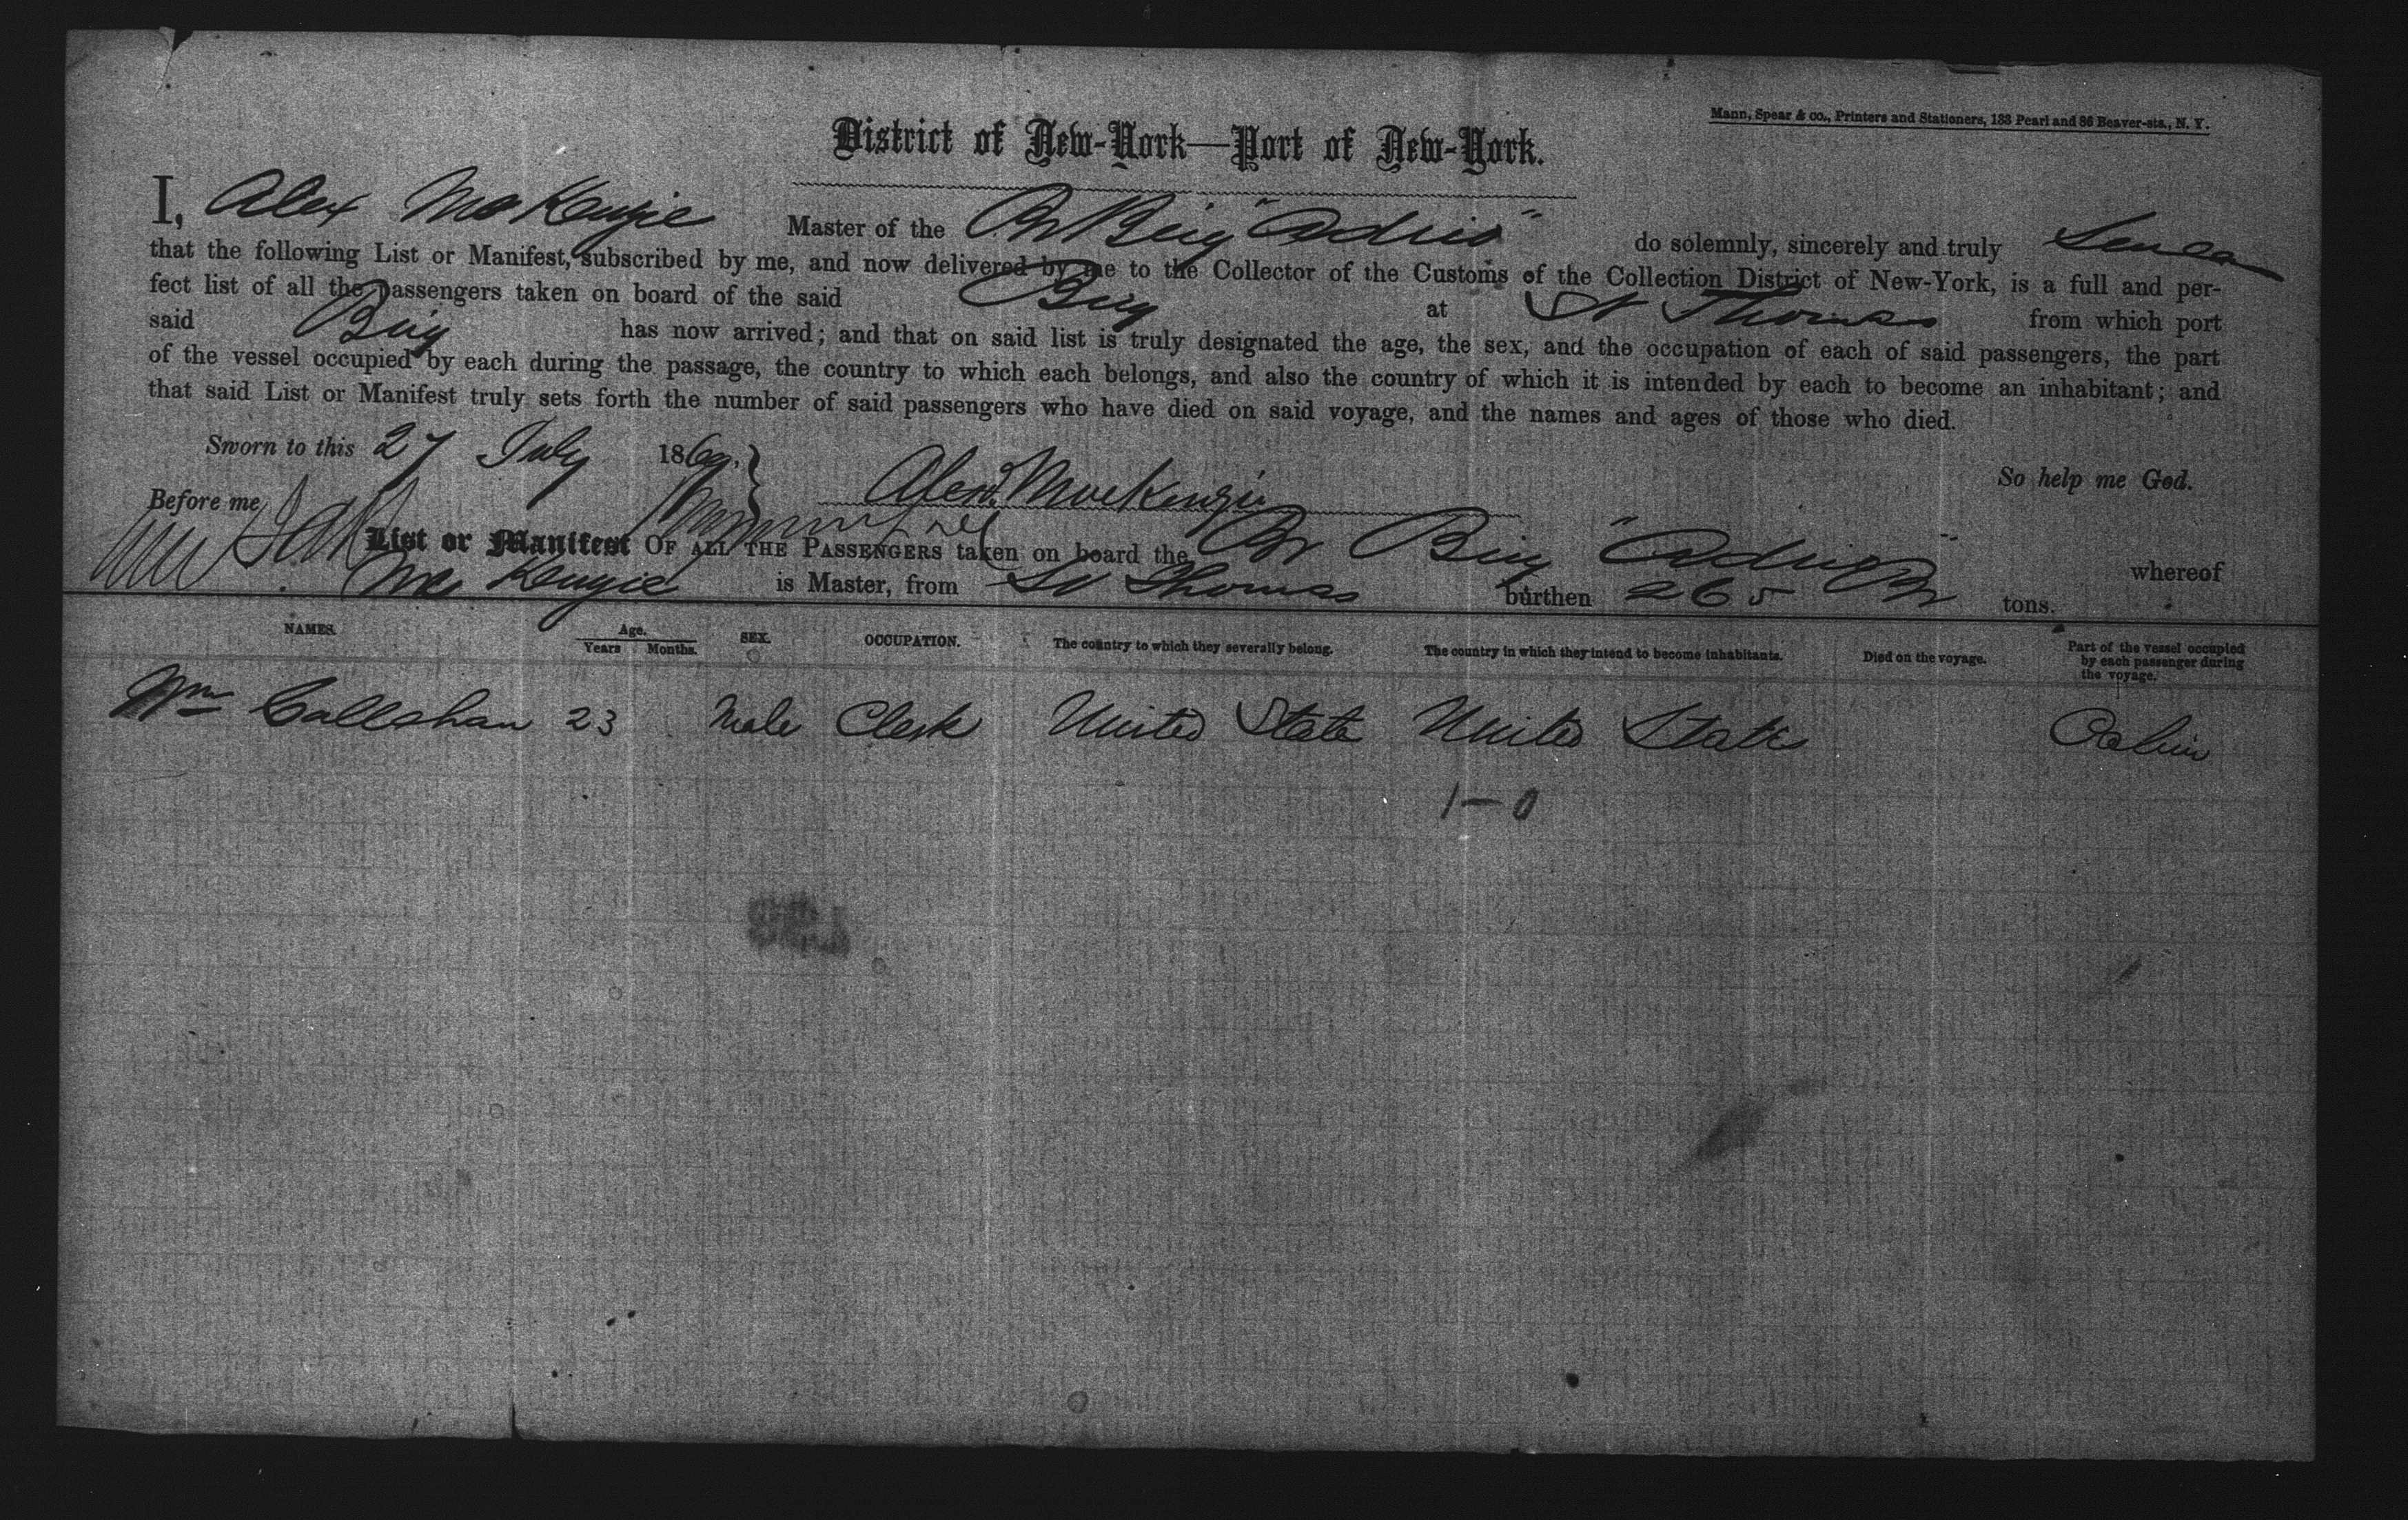 Mann, Spear & co., Printers and Stationers, 133 Pearl and 86 Beaver-sts., N. Y.
District of New-York—Port of New-York.
I, Alex McKenzie Master of the Br Brig "Adria" do solemnly, sincerely and truly Swear
that the following List or Manifest, subscribed by me, and now delivered by me to the Collector of the Customs of the Collection District of New-York, is a full and per-
fect list of all the passengers taken on board of the said Brig at St Thomas from which port
said Brig has now arrived; and that on said list is truly designated the age, the sex, and the occupation of each of said passengers, the part
of the vessel occupied by each during the passage, the country to which each belongs, and also the country of which it is intended by each to become an inhabitant; and
that said List or Manifest truly sets forth the number of said passengers who have died on said voyage, and the names and ages of those who died.
Sworn to this 27 July 1869, So help me God.
Before me Alexr. MacKenzie
List or Manifest OF ALL THE PASSENGERS taken on board the Br Brig "Adria" Br whereof
McKenzie is Master, from St Thomas burthen 265 tons.
NAMES. Age. Years Months. SEX. OCCUPATION. The country to which they severally belong. The country in which they intend to become inhabitants. Died on the voyage. Part of the vessel occupied by each passenger during the voyage.
Wm Callahan 23 Male Clerk United State United State Cabin
1—0